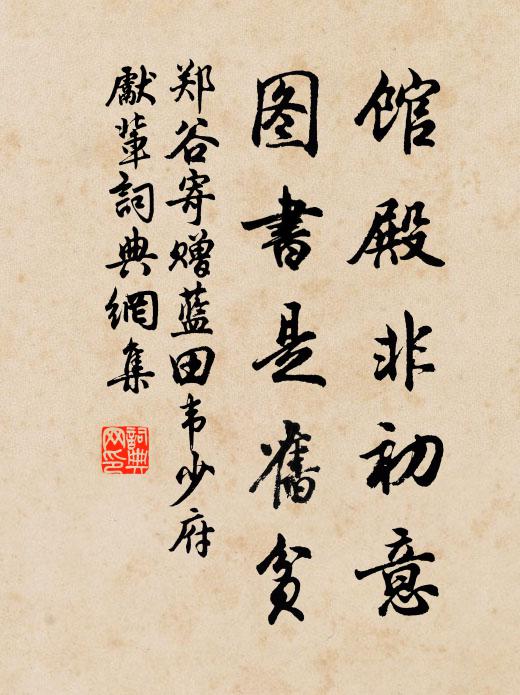 馆殿非初意
图書是舊贫
郑谷寄赠蓝田韦少府
獻輩詞典網集
詞典网印